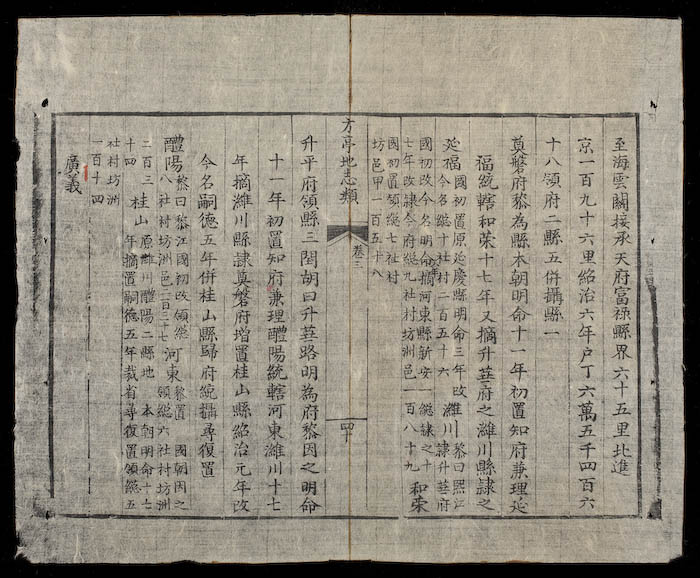 至海雲關接承天府富祿縣界六十五里北進
京一百九十六里紹治六年户丁六萬五千四百六
十八領府二縣五併攝縣一
奠磐府黎為縣本朝明命十一年初置知府兼理延
福統轄和榮十七年又摘升華府之濰川縣隷之
延福國初置原延慶縣明命三年改今名總十社村二百五十六 濰川黎曰熙江隷升華府
國初改今名明命摘河東縣新安一總隷之十七年改隷今府總九社村坊洲邑一百八十九 和榮
國初置領總七社村坊邑甲一百五十八
方亭地志類 卷三 四十
升平府領縣三閏胡曰升華路明為府黎因之明命
十一年初置知府兼理醴陽統轄河東濰川十七
年摘濰川縣隷奠磐府增置桂山縣紹治元年改
今名嗣德五年併桂山縣歸府統攝尋復置
醴陽黎曰黎江國初改領總八社村坊洲邑二百三十七 河東黎置 國朝因之領總六社村坊洲
二百三十四 桂山原濰川醴陽二縣地 本朝明命十七年摘置嗣德五年裁省尋復置領總五
社村坊洲一百十四
廣義